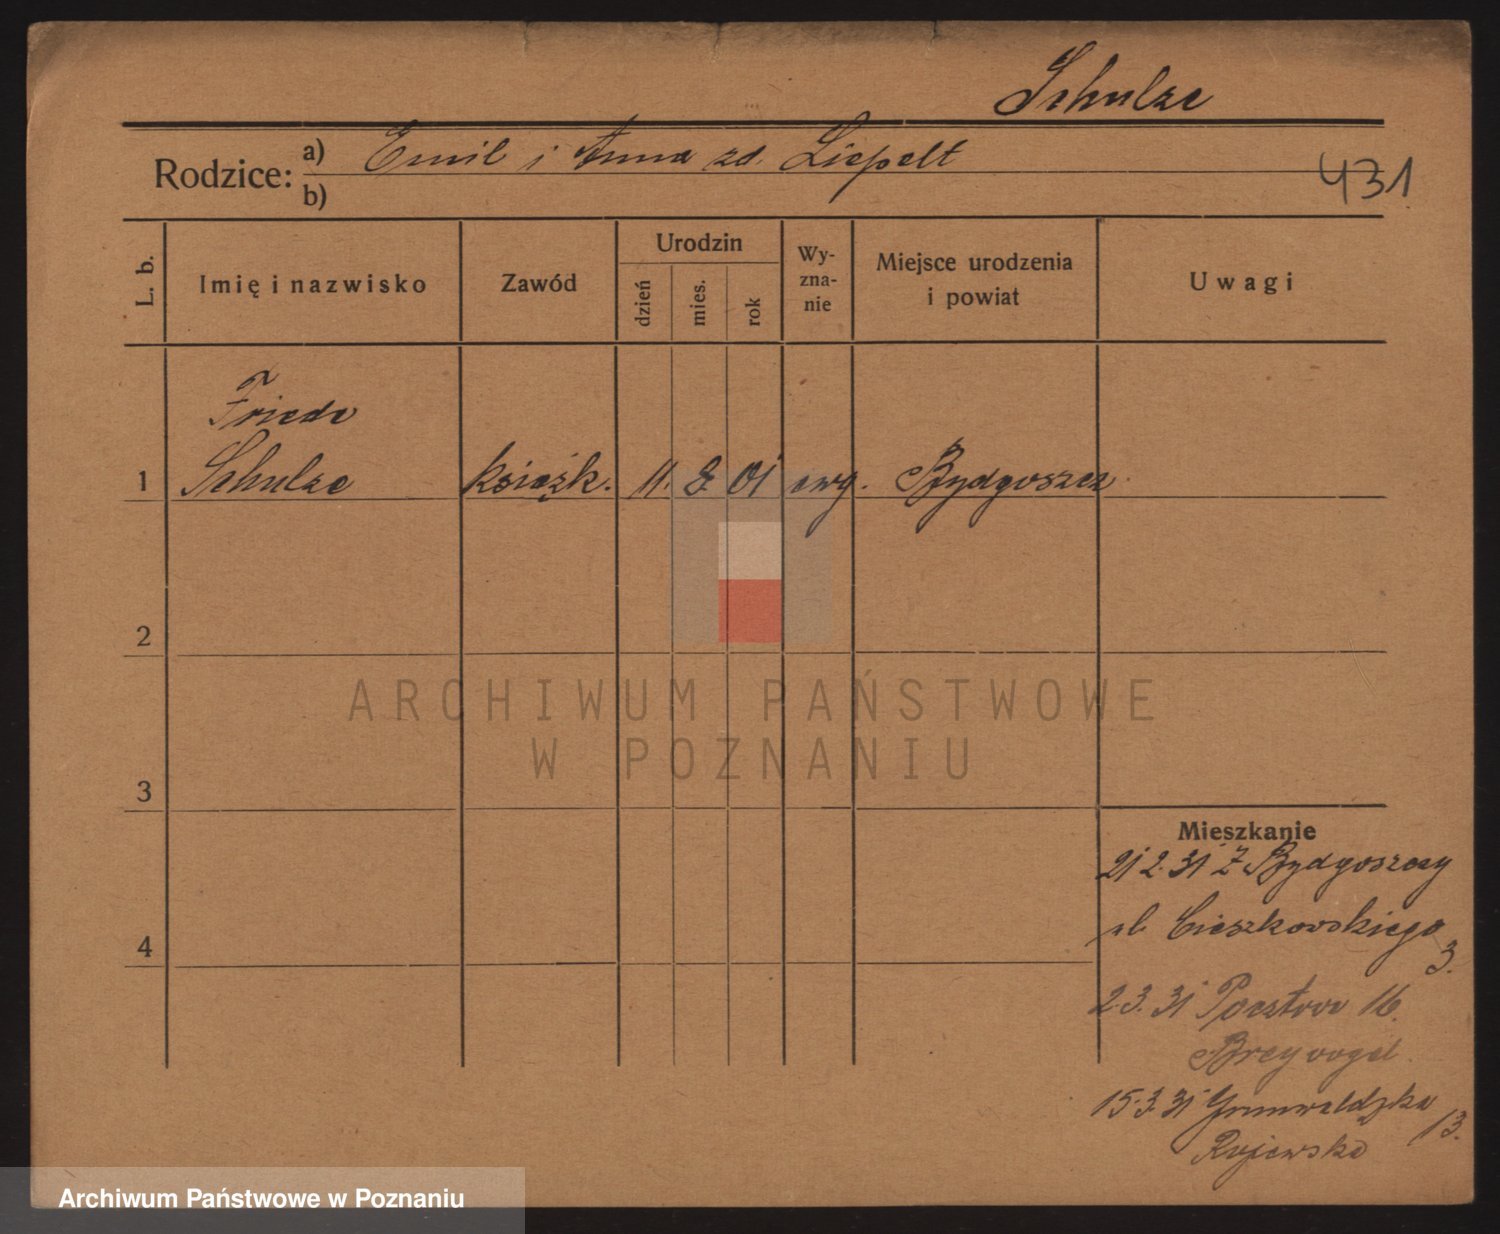 Schulze
Rodzice: a) Emil i Anna zd. Liepelt
b)
431
L. b.
Imię i nazwisko
Zawód
Urodzin
dzień
mies.
rok
Wy-
zna-
nie
Miejsce urodzenia
i powiat
Uwagi
Frieda
1 Schulze książk. 11. 8. 01 ewg. Bydgoszcz
2
3
4
Mieszkanie
21 2. 31 Z Bydgoszczy
ul. Cieszkowskiego
3.
2. 3. 31 Pocztowa 16.
Breyvogel.
15. 3. 31 Grunwaldzka
13.
Rujewska
ARCHIWUM PAŃSTWOWE
W POZNANIU
Archiwum Państwowe w Poznaniu